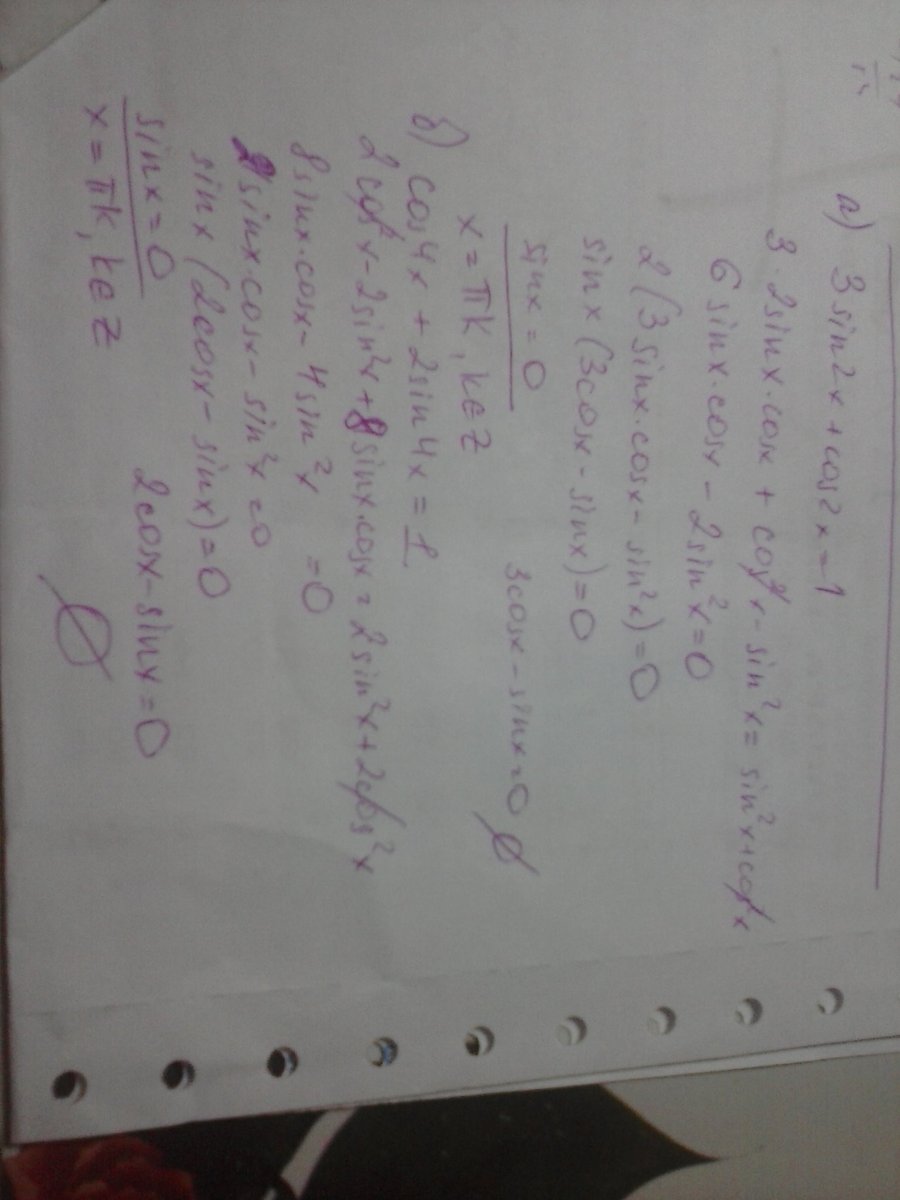 а) 3sin2x + cos2x = 1
3·2sinx·cosx + cos²x - sin²x = sin²x + cos²x
6sinx·cosx - 2sin²x = 0
2(3sinx·cosx - sin²x) = 0
sinx(3cosx - sinx) = 0
sinx = 0 3cosx - sinx = 0 ∅
x = πk, k∈Z
б) cos4x + 2sin4x = 1
2cos²x - 2sin²x + 8sinx·cosx = 2sin²x + 2cos²x
8sinx·cosx - 4sin²x = 0
2sinx·cosx - sin²x = 0
sinx(2cosx - sinx) = 0
sinx = 0 2cosx - sinx = 0
x = πk, k∈Z ∅